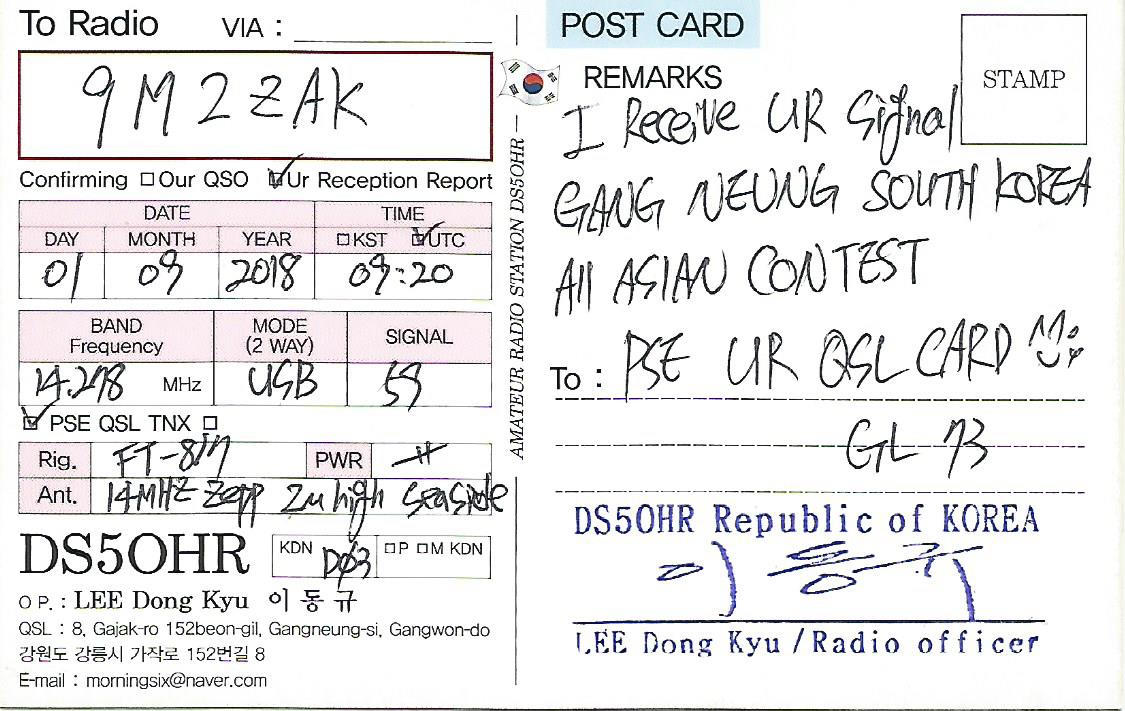 To Radio VIA :
9M2ZAK
Confirming □Our QSO ☑Ur Reception Report
DATE TIME
DAY MONTH YEAR □KST ☑UTC
01 09 2018 09:20
BAND Frequency MODE (2 WAY) SIGNAL
14.278 MHz USB 59
☑ PSE QSL TNX □
Rig. FT-817 PWR
Ant. 14MHZ Zepp 2m high Seaside
DS5OHR KDN DØ3 □P □M KDN
OP. : LEE Dong Kyu 이 동 규
QSL : 8, Gajak-ro 152beon-gil, Gangneung-si, Gangwon-do
강원도 강릉시 가작로 152번길 8
E-mail : morningsix@naver.com
AMATEUR RADIO STATION DS5OHR
POST CARD
STAMP
REMARKS
I Receive UR Signal
GANG NEUNG SOUTH KOREA
All ASIAN CONTEST
To : PSE UR QSL CARD
GL 73
DS5OHR Republic of KOREA
이동규
LEE Dong Kyu / Radio officer